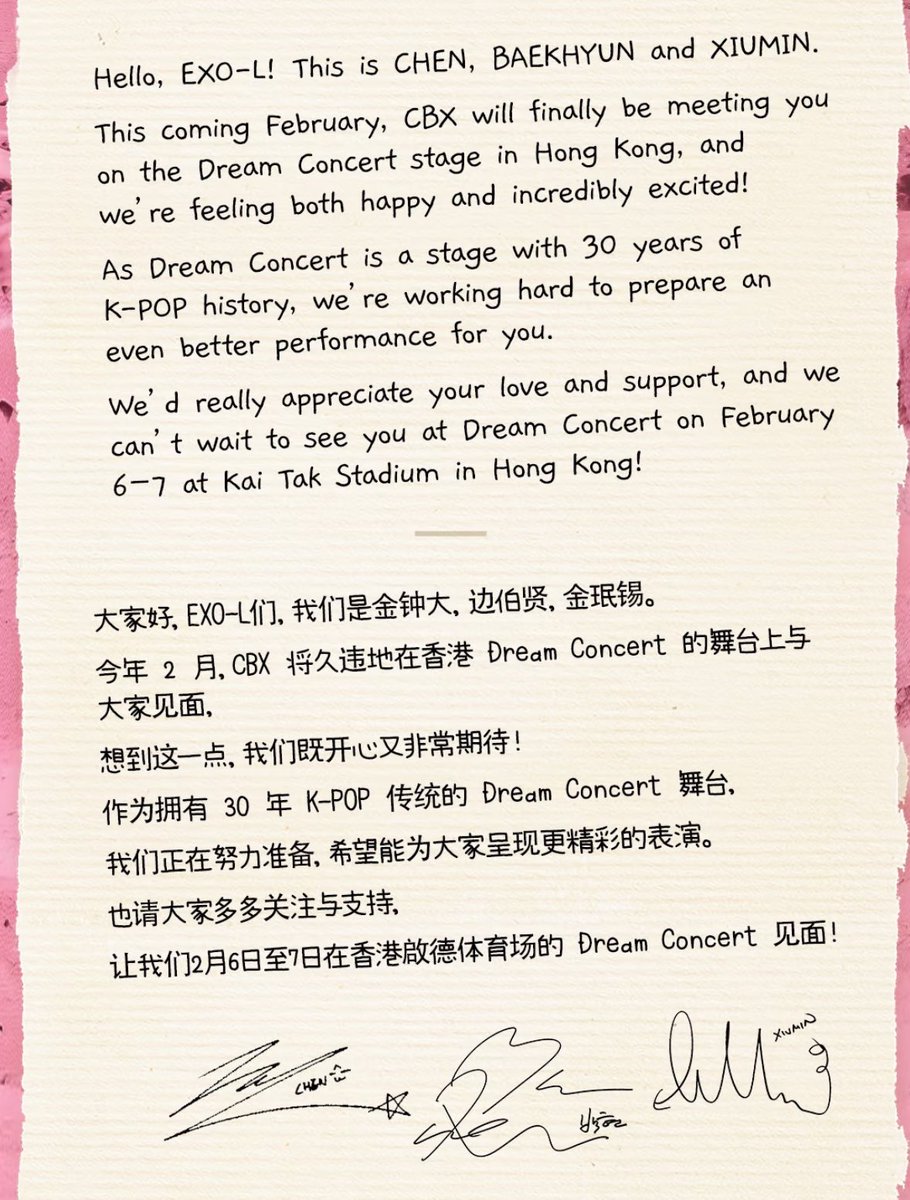 Hello, EXO-L! This is CHEN, BAEKHYUN and XIUMIN.
This coming February, CBX will finally be meeting you
on the Dream Concert stage in Hong Kong, and
we're feeling both happy and incredibly excited!
As Dream Concert is a stage with 30 years of
K-POP history, we're working hard to prepare an
even better performance for you.
We'd really appreciate your love and support, and we
can't wait to see you at Dream Concert on February
6-7 at Kai Tak Stadium in Hong Kong!
大家好, EXO-L们, 我们是金钟大, 边伯贤, 金珉锡。
今年 2 月, CBX 将久违地在香港 Dream Concert 的舞台上与
大家见面,
想到这一点, 我们既开心又非常期待!
作为拥有 30 年 K-POP 传统的 Dream Concert 舞台,
我们正在努力准备, 希望能为大家呈现更精彩的表演。
也请大家多多关注与支持,
让我们2月6日至7日在香港啟德体育场的 Dream Concert 见面!
CHEN
XIUMIN